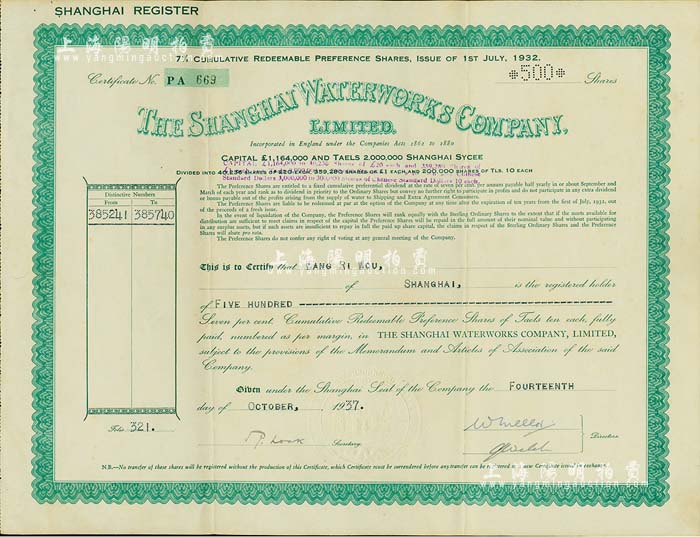 SHANGHAI REGISTER
7% CUMULATIVE REDEEMABLE PREFERENCE SHARES, ISSUE OF 1ST JULY, 1932.
Certificate No. PA 669
*500* Shares
THE SHANGHAI WATERWORKS COMPANY,
LIMITED.
Incorporated in England under the Companies Acts 1862 to 1880
CAPITAL £1,164,000 AND TAELS 2,000,000 SHANGHAI SYCEE
DIVIDED INTO 40,236 SHARES OF £20 EACH, 359,280 SHARES OF £1 EACH AND 200,000 SHARES OF TLS. 10 EACH
The Preference Shares are entitled to a fixed cumulative preferential dividend at the rate of seven per cent. per annum payable half yearly in or about September and
March of each year and rank as to dividend in priority to the Ordinary Shares but confer no further right to participate in profits and do not participate in any extra dividend
or bonus payable out of the profits arising from the supply of water to Shipping and Extra Agreement Consumers.
The Preference Shares are liable to be redeemed at par at the option of the Company at any time after the expiration of ten years from the first of July, 1932, out
of the proceeds of a fresh issue.
In the event of liquidation of the Company, the Preference Shares will rank equally with the Sterling Ordinary Shares to the extent that if the assets available for
distribution are sufficient to meet claims in respect of the capital the Preference Shares will be repaid in full the amount of their nominal value and without participating
in any surplus assets, but if such assets are insufficient to repay in full the paid up share capital, the claims in respect of the Sterling Ordinary Shares and the Preference
Shares will abate pro rata.
The Preference Shares do not confer any right of voting at any general meeting of the Company.
Distinctive Numbers
From To
385241 385740
This is to Certify that
of SHANGHAI, is the registered holder
of FIVE HUNDRED
Seven per cent. Cumulative Redeemable Preference Shares of Taels ten each, fully
paid, numbered as per margin, in THE SHANGHAI WATERWORKS COMPANY, LIMITED,
subject to the provisions of the Memorandum and Articles of Association of the said
Company.
Given under the Shanghai Seal of the Company the FOURTEENTH
day of OCTOBER, 1937.
Folio 321.
Secretary
Directors
N.B.—No transfer of these shares will be registered without the production of this Certificate, which Certificate must be surrendered before any transfer can be registered or new Certificate issued in exchange.
上海陽明拍賣
www.yangmingauction.com